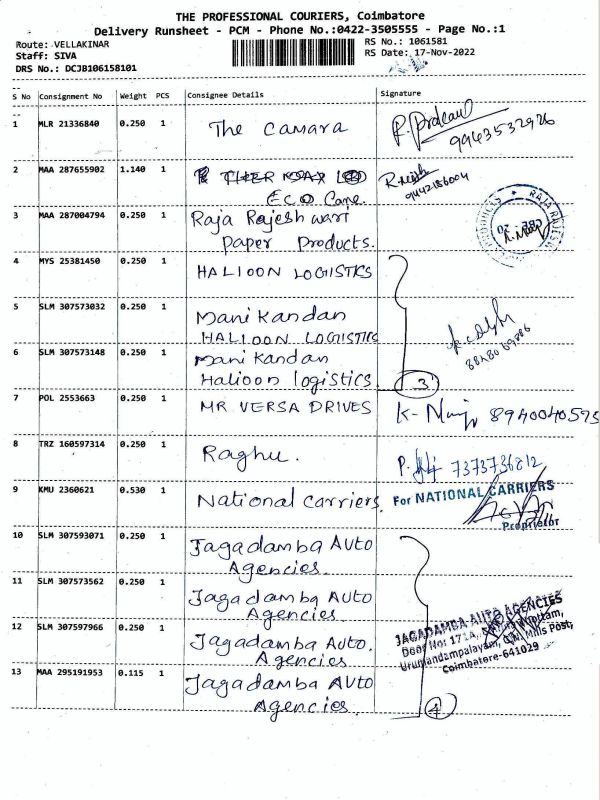 THE PROFESSIONAL COURIERS, Coimbatore
Delivery Runsheet - PCM - Phone No.:0422-3505555 - Page No.:1
Route: VELLAKINAR RS No.: 1061581
Staff: SIVA RS Date: 17-Nov-2022
DRS No.: DCJB106158101
S No Consignment No Weight PCS Consignee Details Signature
1 MLR 21336840 0.250 1 The Camara 9943532926
2 MAA 287655902 1.140 1 9442186004
Eco Care
3 MAA 287004794 0.250 1 Raja Rajeshwari
Paper Products.
4 MYS 25381450 0.250 1 HALIOON LOGISTICS
5 SLM 307573032 0.250 1 Manikandan
HALIOON LOGISTICS
6 SLM 307573148 0.250 1 Manikandan
Halioon logistics. 3
7 POL 2553663 0.250 1 MR VERSA DRIVES
8 TRZ 160597314 0.250 1 Raghu. 7373736812
9 KMU 2360621 0.530 1 National Carriers. For NATIONAL CARRIERS
Proprietor
10 SLM 307593071 0.250 1 Jagadamba Auto
Agencies.
11 SLM 307573562 0.250 1 Jagadamba Auto
Agencies
12 SLM 307597966 0.250 1 Jagadamba Auto.
Agencies
JAGADAMBA AUTO AGENCIES
Door No: 171A,
Urumandampalayam, G.N. Mills Post,
Coimbatore-641029
13 MAA 295191953 0.115 1 Jagadamba Auto
Agencies. 4